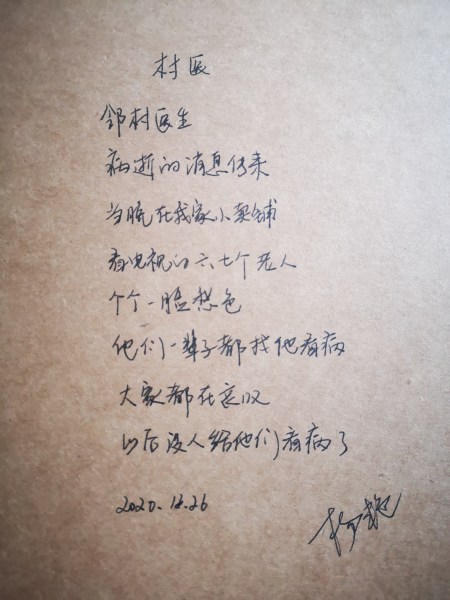 村医
邻村医生
病逝的消息传来
当晚在我家小卖铺
看电视的六七个老人
个个一脸愁色
他们一辈子都找他看病
大家都在哀叹
以后没人给他们看病了
2020.12.26